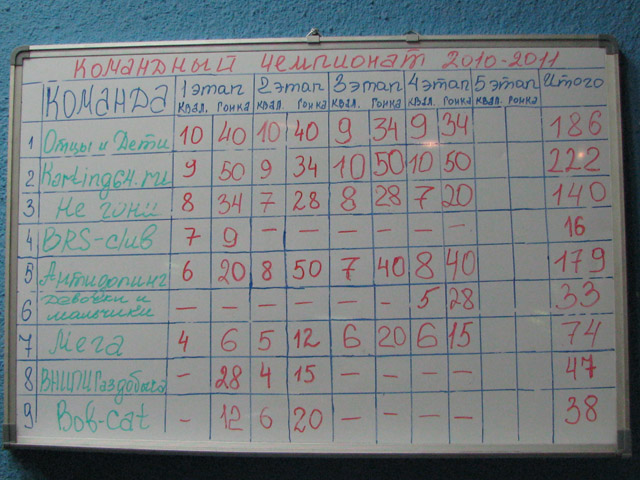 Командный чемпионат 2010-2011
КОМАНДА 1 этап 2 этап 3 этап 4 этап 5 этап Итого
квал. гонка квал. гонка квал. гонка квал. гонка квал. гонка
1 Отцы и Дети 10 40 10 40 9 34 9 34 186
2 Karting64.ru 9 50 9 34 10 50 10 50 222
3 Не гони 8 34 7 28 8 28 7 20 140
4 BRS-club 7 9 – – – – – – 16
5 Антидопинг 6 20 8 50 7 40 8 40 179
6 Девочки и мальчики – – – – – – 5 28 33
7 Мега 4 6 5 12 6 20 6 15 74
8 ВНИПИГаздобыча – 28 4 15 – – – – 47
9 Bob-cat – 12 6 20 – – – – 38